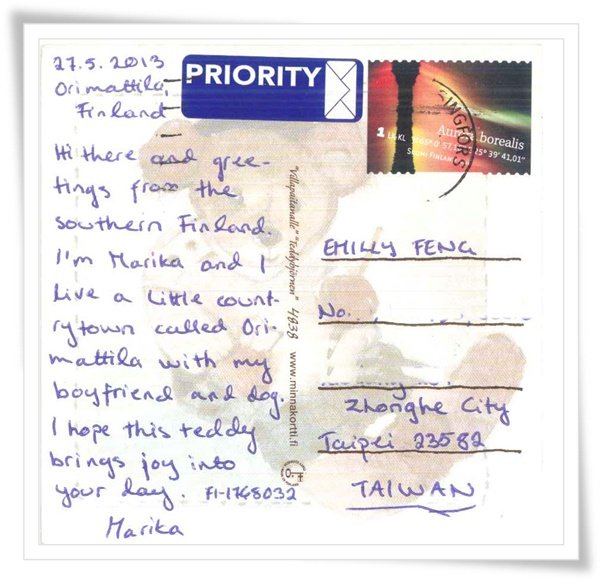 27.5.2013
Orimattila,
Finland
Hi there and gree-
tings from the
southern Finland.
I'm Marika and I
live a little count-
rytown called Ori-
mattila with my
boyfriend and dog.
I hope this teddy
brings joy into
your day. FI-1748032
Marika
PRIORITY
Aurora borealis
1 LKL
SUOMI FINLAND
INGFORS
"Teddybjörnen" 4838 www.minnakortti.fi
EMILLY FENG
No.
Zhonghe City
Taipei 23582
TAIWAN